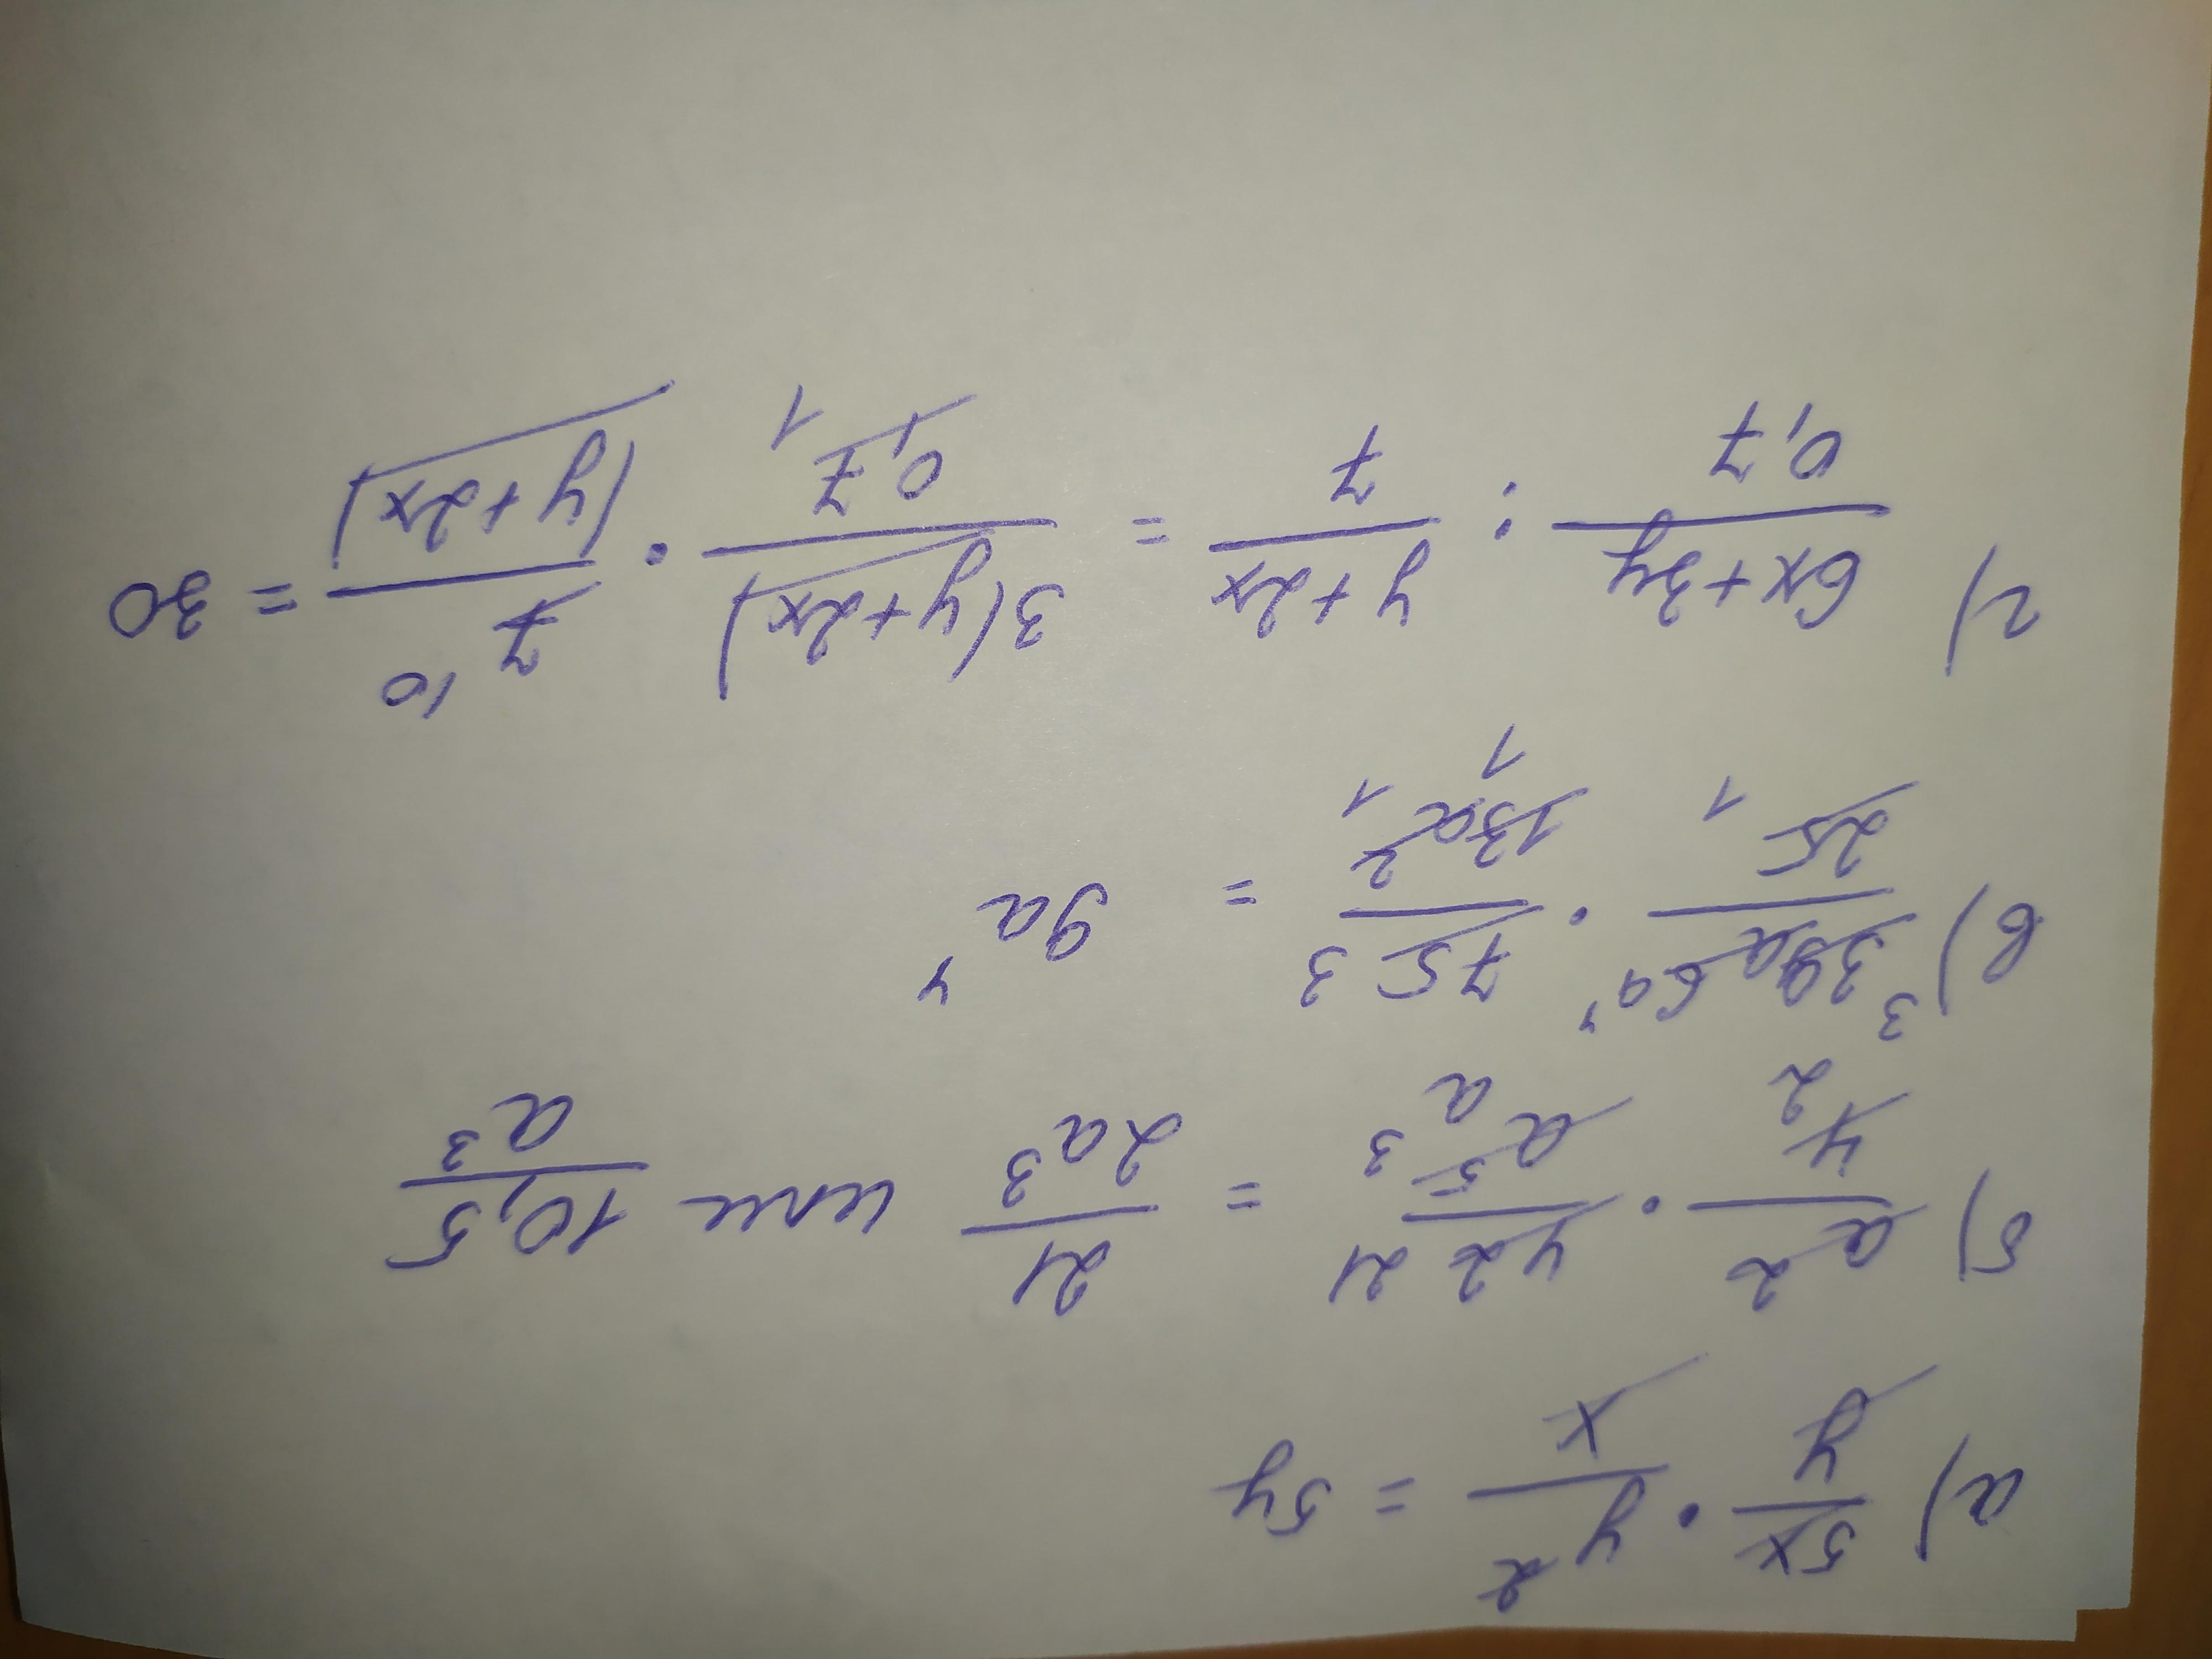 а) 5x/y · y²/x = 5y
б) a²/4 2 · 42 21/a⁵ a³ = 21/2a³ или 10,5/a³
в) 3 39a⁶ a⁴/25 1 · 75 3/13a² 1 1 = 9a⁴
г) 6x+3y/0,7 : y+2x/7 = 3(y+2x)/0,7 1 · 7 10/(y+2x) = 30